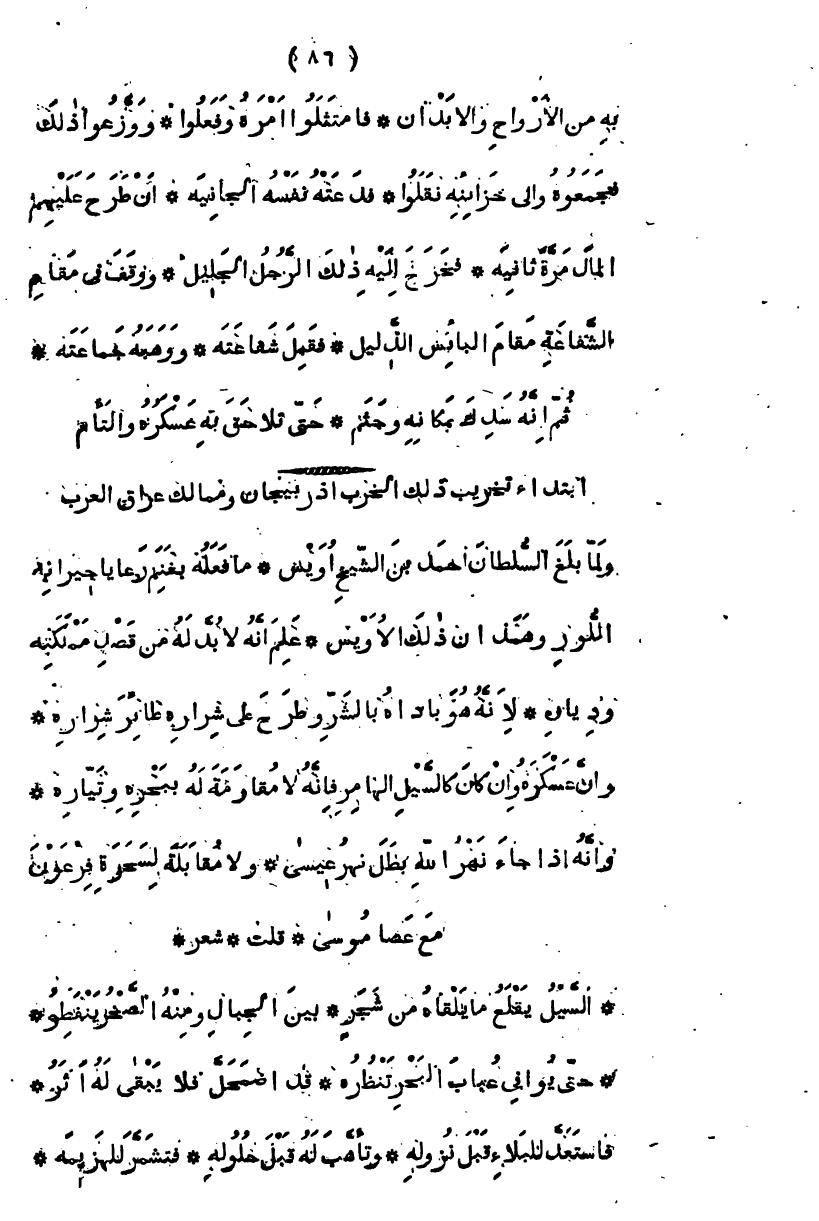 ( ٨٦ )
به من الأرْواحِ والابَدْان * فامتَثَلُوا امْرَهُ وَفَعَلُوا * ووَزَّعوا ذٰلكَ
فجَمَعَوهُ والى خَزَاينِهِ نقَلَوُا * فدَعَتْهُ نَفْسُهُ الجانِيَه * اَنْ طَرَحَ عَلَيْهِمُ
المالَ مَرَّةً ثانيَه * فخَرَجَ اِلَيْهِ ذٰلِكَ الرَّجُلُ الجَليلُ * ووَقَفَ فى مَقامِ
الشَّفاعَةِ مَقامَ البائِس الذَّليل * فقَبِلَ شَفاعَتَه * ووَهَبَهُ جماعَتَه *
ثُمَّ اِنَّهُ سَدِكَ بمَكانِهِ وجَثَم * حَتّى تلاحَقَ بَهِ عَسْكَرُهُ والتَأَم
ابتداء تخريب ذلك الخرب اذربيجان وممالك عراق العرب
ولَمّا بلَغَ السُّلطانَ احمدَ بنَ الشَّيخِ اُوَيْس * ما فَعَلَهُ بغَنَمِ رَعايا جيرانِهِ
اللُّورِ وهَمَذان ذٰلكَ الاُوَيْس * عَلِمَ اَنَّهُ لا بُدَّ لَهُ من قَصْدِ مَمْلَكَتِهِ
ودِيارِه * لِاَنَّهُ هُوَ باداهُ بالشَرِّ وطرَحَ على شِرارِهِ طائِرَ شِرارِه *
وانَّ عَسْكَرَهُ وانْ كانَ كالسَّيْلِ الهامِرِ فاِنَّهُ لا مُقاوَمَةَ لَهُ ببَحْرِهِ وتَيّارِه *
وانَّهُ اذا جاءَ نَهْرُ اللهِ بَطَل نهرُ عيسىٰ * ولا مُقابَلَةَ لِسَحَرَةِ فِرْعَوْنَ
مَعَ عَصا مُوسىٰ * قلت * شعر *
* السَّيْلُ يقْلَعُ ما يَلْقاهُ من شَجَرٍ * بينَ الجِبالِ ومِنْهُ الصَّخْرُ يَنْفَطِرُ *
* حتّى يُوافى عُبابَ البَحْرِ تَنْظُرُه * قد اضمَحَلَّ فلا يَبْقى لَهُ اَثَرُ *
فاستَعَدَّ للبَلاءِ قَبْلَ نُزولِهِ * وتأهَّبَ لَهُ قَبْلَ حُلُولِهِ * فتشَمَّرَ للهَزيمَه *